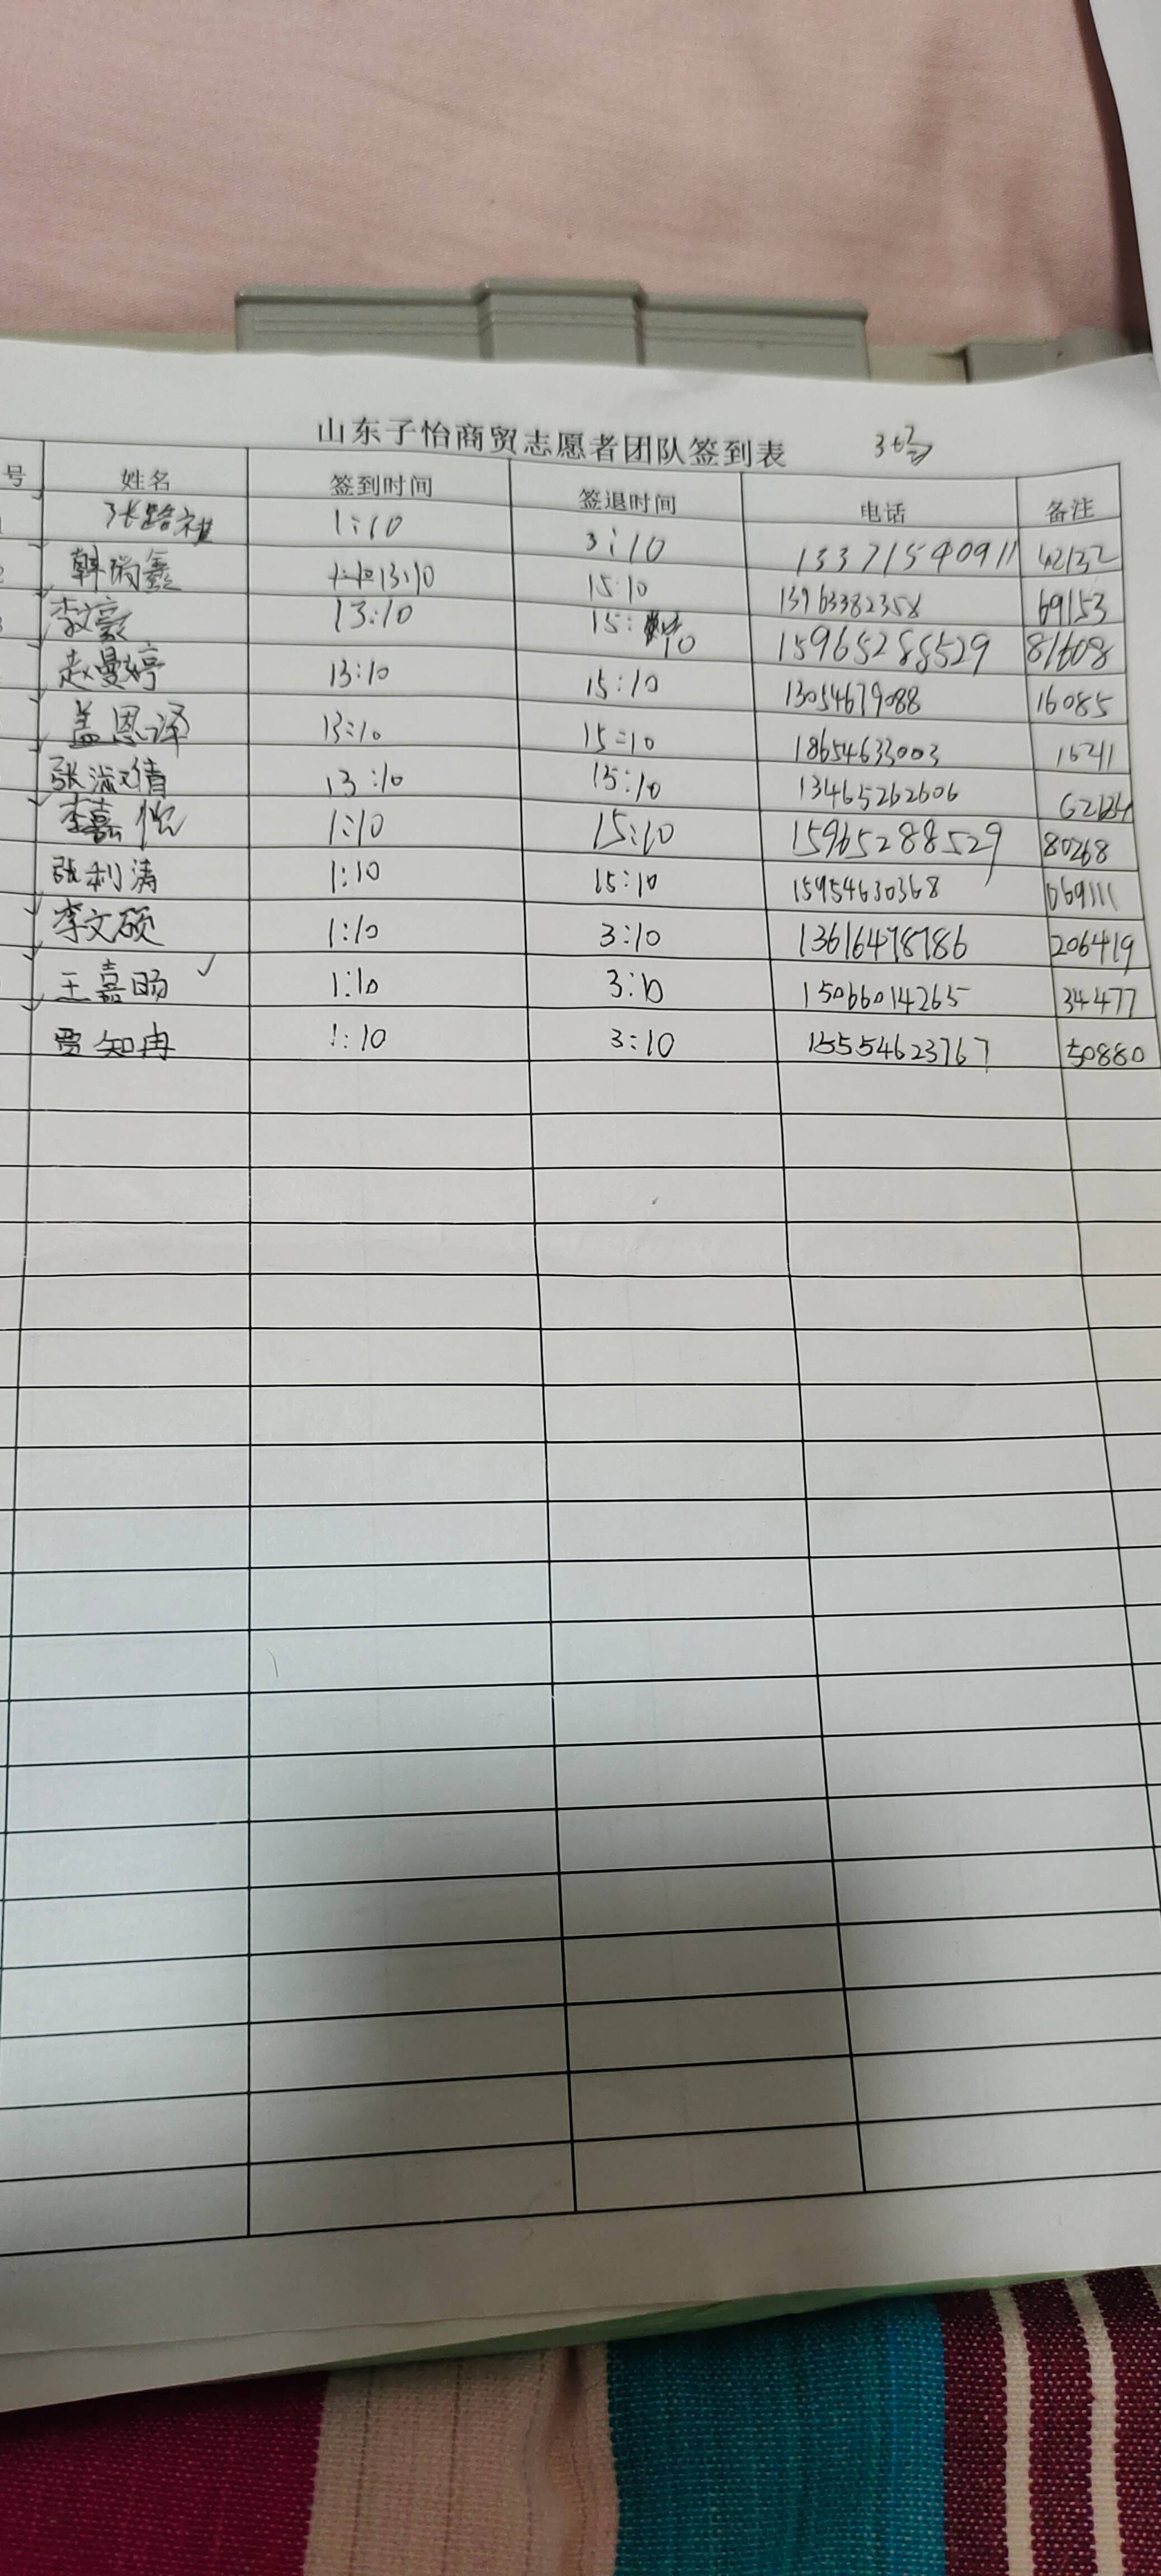 山东子怡商贸志愿者团队签到表 3号
号 姓名 签到时间 签退时间 电话 备注
张路 1:10 3:10 13371540911 42132
2 韩瑞鑫 13:10 15:10 13963382358 69153
李文豪 13:10 15:10 15965288529 81608
赵曼婷 13:10 15:10 13054679088 16085
盖恩泽 13:10 15:10 18654633003 16211
张淑倩 13:10 15:10 13465262606
李嘉悦 1:10 15:10 15965288529 80268
张利涛 1:10 15:10 15954630368 069111
李文硕 1:10 3:10 13616478786 206419
王嘉旸 1:10 3:10 15066014265 34477
贾知冉 1:10 3:10 15554623767 50880